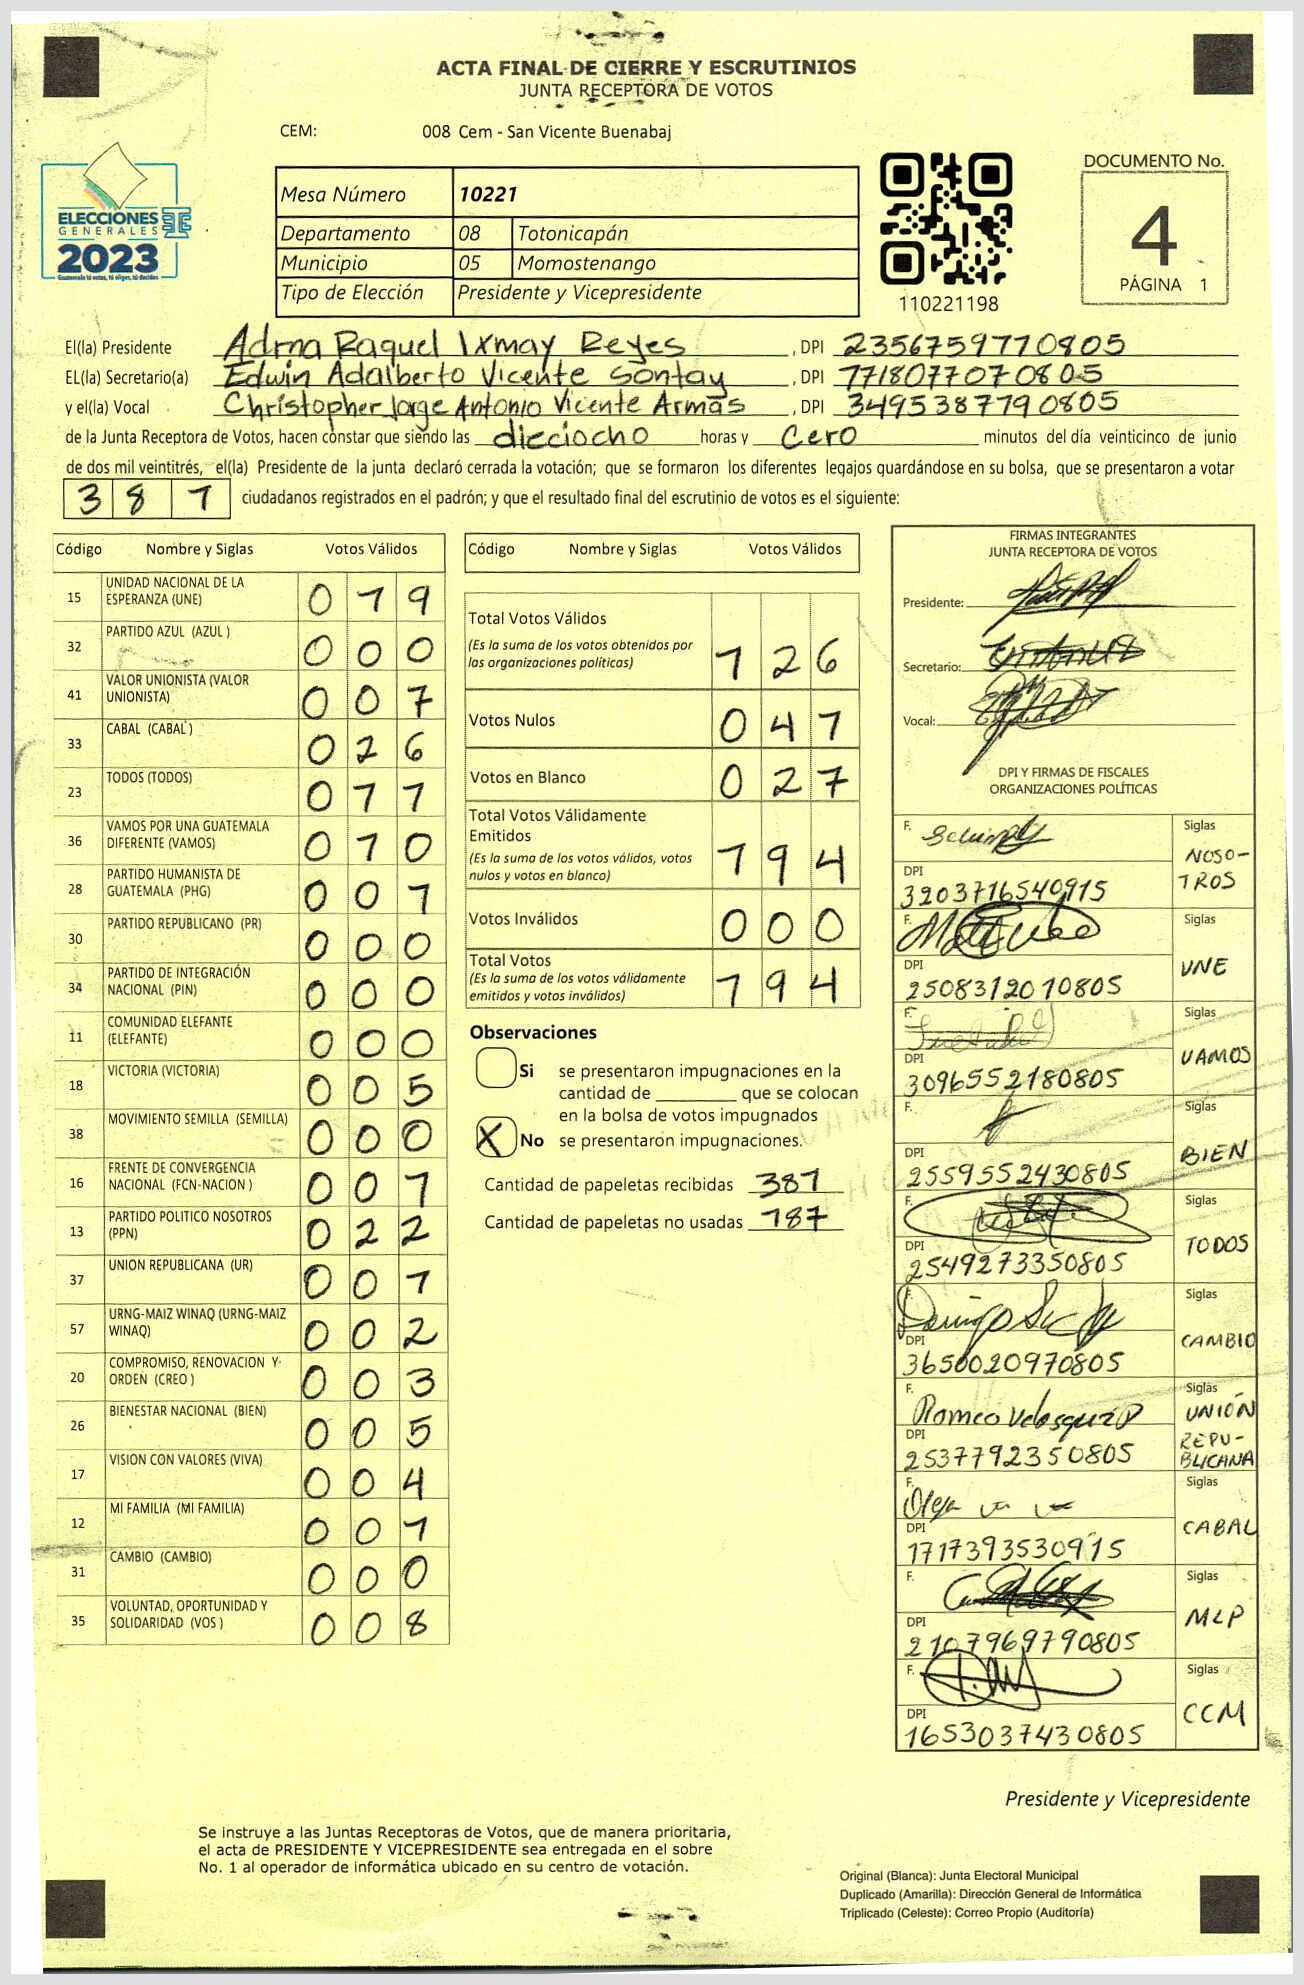 ACTA FINAL DE CIERRE Y ESCRUTINIOS
JUNTA RECEPTORA DE VOTOS
CEM: 008 Cem - San Vicente Buenabaj
ELECCIONES
GENERALES
2023
Guatemala tú votas, tú eliges, tú decides
Mesa Número 10221
Departamento 08 Totonicapán
Municipio 05 Momostenango
Tipo de Elección Presidente y Vicepresidente
110221198
DOCUMENTO No.
4
PÁGINA 1
El(la) Presidente Adrna Raquel Ixmay Reyes, DPI
EL(la) Secretario(a) Edwin Adalberto Vicente Sontay, DPI
y el(la) Vocal Christopher Jorge Antonio Vicente Armas, DPI
de la Junta Receptora de Votos, hacen constar que siendo las dieciocho horas y cero minutos del día veinticinco de junio
de dos mil veintitrés, el(la) Presidente de la junta declaró cerrada la votación; que se formaron los diferentes legajos guardándose en su bolsa, que se presentaron a votar
381 ciudadanos registrados en el padrón; y que el resultado final del escrutinio de votos es el siguiente:
Código Nombre y Siglas Votos Válidos
15 UNIDAD NACIONAL DE LA ESPERANZA (UNE) 019
32 PARTIDO AZUL (AZUL ) 000
41 VALOR UNIONISTA (VALOR UNIONISTA) 007
33 CABAL (CABAL ) 026
23 TODOS (TODOS) 011
36 VAMOS POR UNA GUATEMALA DIFERENTE (VAMOS) 010
28 PARTIDO HUMANISTA DE GUATEMALA (PHG) 001
30 PARTIDO REPUBLICANO (PR) 000
34 PARTIDO DE INTEGRACIÓN NACIONAL (PIN) 000
11 COMUNIDAD ELEFANTE (ELEFANTE) 000
18 VICTORIA (VICTORIA) 005
38 MOVIMIENTO SEMILLA (SEMILLA) 000
16 FRENTE DE CONVERGENCIA NACIONAL (FCN-NACION ) 001
13 PARTIDO POLITICO NOSOTROS (PPN) 022
37 UNION REPUBLICANA (UR) 001
57 URNG-MAIZ WINAQ (URNG-MAIZ WINAQ) 002
20 COMPROMISO, RENOVACION Y ORDEN (CREO ) 003
26 BIENESTAR NACIONAL (BIEN) 005
17 VISION CON VALORES (VIVA) 004
12 MI FAMILIA (MI FAMILIA) 001
31 CAMBIO (CAMBIO) 000
35 VOLUNTAD, OPORTUNIDAD Y SOLIDARIDAD (VOS ) 008
Código Nombre y Siglas Votos Válidos
Total Votos Válidos
(Es la suma de los votos obtenidos por
las organizaciones políticas) 126
Votos Nulos 041
Votos en Blanco 027
Total Votos Válidamente
Emitidos
(Es la suma de los votos válidos, votos
nulos y votos en blanco) 194
Votos Inválidos 000
Total Votos
(Es la suma de los votos válidamente
emitidos y votos inválidos) 194
Observaciones
Si se presentaron impugnaciones en la
cantidad de ________ que se colocan
en la bolsa de votos impugnados
X No se presentaron impugnaciones.
Cantidad de papeletas recibidas 381
Cantidad de papeletas no usadas 187
FIRMAS INTEGRANTES
JUNTA RECEPTORA DE VOTOS
Presidente:
Secretario:
Vocal:
DPI Y FIRMAS DE FISCALES
ORGANIZACIONES POLÍTICAS
F. Siglas
NOSO-
TROS
DPI
3203716540915
F. Siglas
UNE
DPI
2508312010805
F. Siglas
VAMOS
DPI
3096552180805
F. Siglas
BIEN
DPI
2559552430805
F. Siglas
TODOS
DPI
2549273350805
F. Siglas
CAMBIO
DPI
3650020970805
F. Romeo Velasquez Siglas
UNIÓN
REPU-
BLICANA
DPI
2537792350805
F. Siglas
CABAL
DPI
1717393530915
F. Siglas
MLP
DPI
2107969790805
F. Siglas
CCM
DPI
1653037430805
Presidente y Vicepresidente
Se instruye a las Juntas Receptoras de Votos, que de manera prioritaria,
el acta de PRESIDENTE Y VICEPRESIDENTE sea entregada en el sobre
No. 1 al operador de informática ubicado en su centro de votación.
Original (Blanca): Junta Electoral Municipal
Duplicado (Amarilla): Dirección General de Informática
Triplicado (Celeste): Correo Propio (Auditoría)